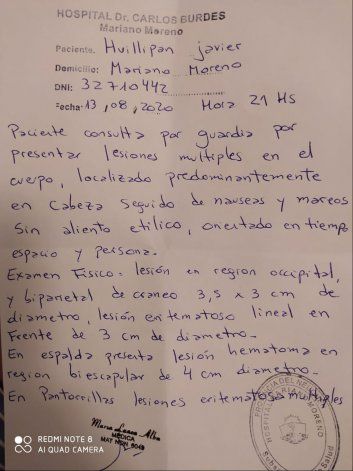 HOSPITAL Dr. CARLOS BURDES
Mariano Moreno
Paciente. Huillipan javier
Domicilio: Mariano Moreno
DNI: 32710442
Fecha: 13, 08, 2020 Hora 21 Hs
Paciente consulta por guardia por
presentar lesiones multiples en el
cuerpo, localizado predominantemente
en cabeza seguido de nauseas y mareos
Sin aliento etilico, orientado en tiempo,
espacio y persona.
Examen Fisico. lesión en region occipital,
y biparietal de craneo 3,5 x 3 cm de
diametro, lesión eritematoso lineal en
Frente de 3 cm de diametro.
En espalda presenta lesión hematoma en
region biescapular de 4 cm diametro.
En Pantorrillas lesiones eritimatosa multiples
MEDICA
REDMI NOTE 8
AI QUAD CAMERA